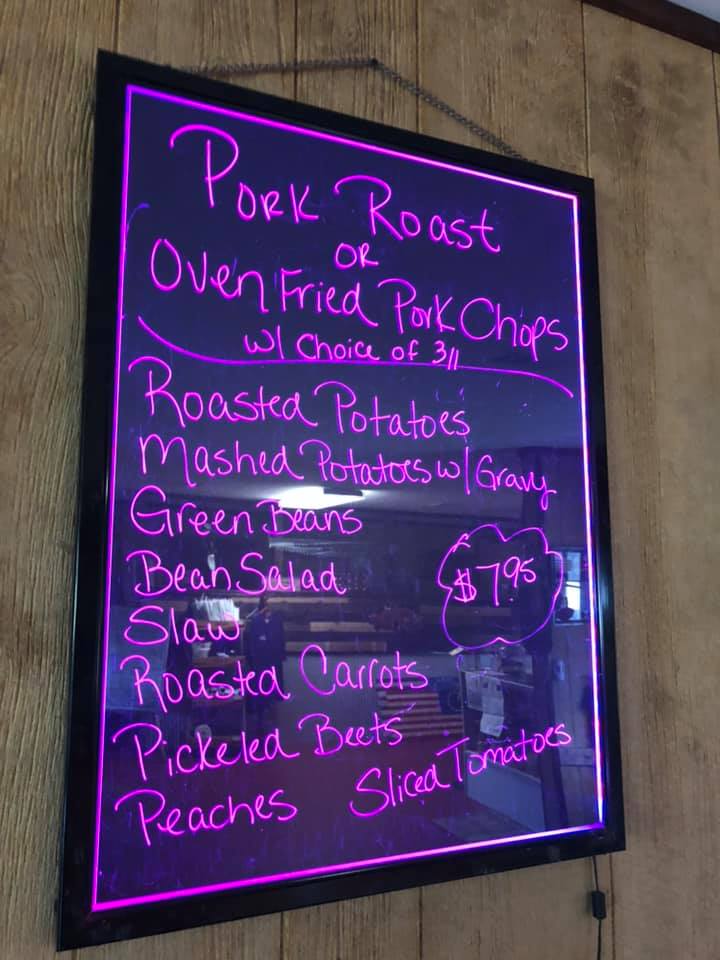 Pork Roast
OR
Oven Fried Pork Chops
w/ Choice of 3//
Roasted Potatoes
Mashed Potatoes w/ Gravy
Green Beans
Bean Salad
$7.95
Slaw
Roasted Carrots
Pickeled Beets
Peaches Sliced Tomatoes